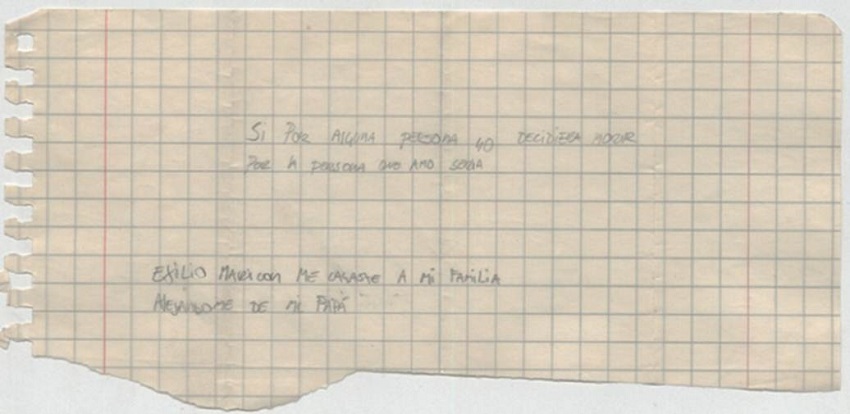 Si POR AlGUNA PERSONA YO DECIDIERA MORIR
POR lA PERSONA QUE AMO SERIA
EXILIO MARICON ME CAGASTE A Mi FAMiLiA
AlEJANDOME DE Mi PAPÁ